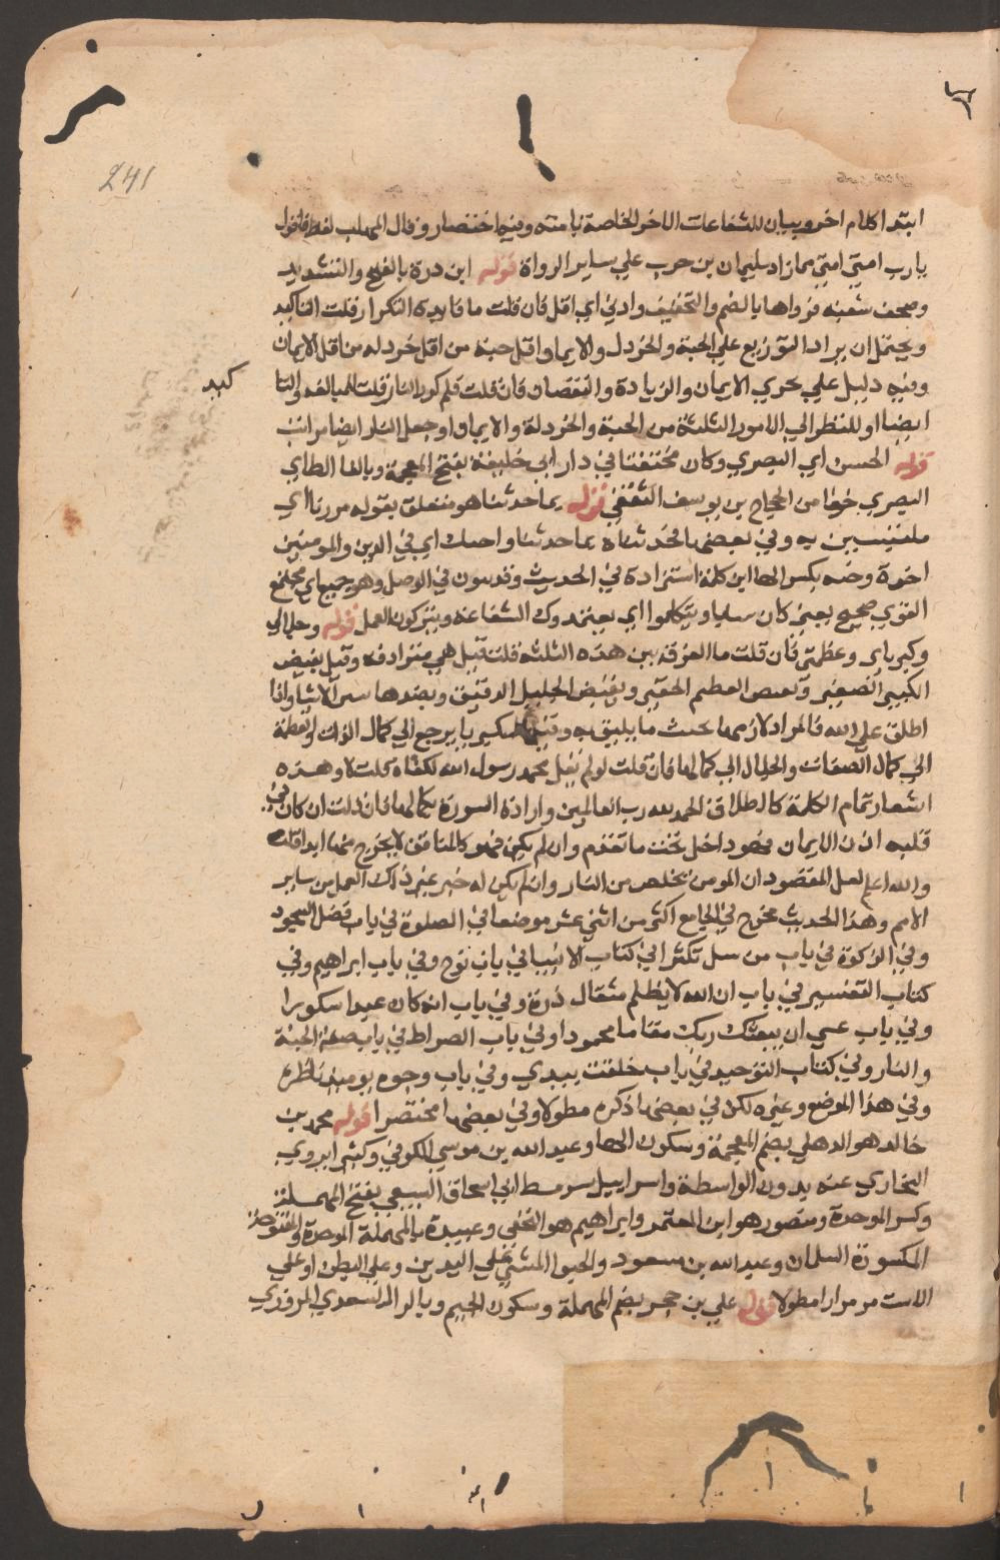 241
ابتدا كلام اخر وبيان للشفاعات الاخر الخاصة بامته وفيه اختصار وقال المهلب لفظ فاقول
يارب امتي امتي مما زاد سليمان بن حرب علي ساير الرواة قوله ابن درة بالفتح والتشديد
وصحف شعبه فرواها بالضم والتخفيف وادني اي اقل فان قلت ما فايدة التكرار قلت التاكيد
ويحتمل ان يراد التوزيع علي الحبة والخردل والايما واقل حبة من اقل خردله من اقل الايمان
وفيه دليل علي تجزي الايمان والزيادة والنقصان فان قلت فلم كرر النار قلت للمبالغه والتا
كيد
ايضا او للنظر الي الامور الثلثة من الحبة والخردلة والايما او جعل النار ايضا مراتب
قوله الحسن اي البصري وكان مختفيا في دار ابي خليفة بفتح المعجمة وبالفا الطاي
البصري خوفا من الحجاج بن يوسف الثقفي قوله بما حدثنا هو متعلق بقوله مررنا اي
ملتبسين به وفي بعضها فحدثناه بما حدثنا واحبك اي في الدين والمومنين
اخوة وهيه بكسر الها اين كلمة استزادة في الحديث وقد ينون في الوصل وهو جميع اي مجتمع
القوي صحيح يعني كان شابا ويتكلوا اي يعتمدوك الشفاعة ويتركون العمل قوله وجلالي
وكبرياي وعظمتي فان قلت ما الفرق بين هذه الثلثة قلت قيل هي مترادفه وقيل نقيض
الكبير الصغير ونقيض العظيم الحقير ونقيض الجليل الدقيق وبضدها تتبين الاشيا واذا
اطلق علي الله فالمراد لازمها بحسب ما يليق به وقيل الكبريا يرجع الي كمال الذات والعظمة
الي كمال الصفات والجلال الي كمالها فان قلت لو لم يقل محمد رسول الله لكفاه قلت لا وهذه
اشعار تمام الكلمة كاطلاق الحمد لله رب العالمين وارادة السورة بكمالها فان قلت ان كان في
قلبه ادني الايمان فهو داخل تحت ما تقدم وان لم يكن فهو كالمنافق لا يخرج منها ابدا قلت
والله اعلم لعل المقصود ان المومن يخلص من النار وان لم يكن له خير غير ذلك العمل من ساير
الامم وهذا الحديث مخرج في الجامع اكثر من اثني عشر موضعا في الصلوة في باب فضل السجود
وفي الزكوة في باب من سل تكثرا في كتاب الانبيا في باب نوح وفي باب ابراهيم وفي
كتاب التفسير في باب ان الله لا يظلم مثقال ذرة وفي باب انه كان عبدا شكورا
وفي باب عسي ان يبعثك ربك مقاما محمودا وفي باب الصراط في باب صفة الجنة
والنار وفي كتاب التوحيد في باب خلقت بيدي وفي باب وجوه يومئذ ناظرة
وفي هذا الموضع وغيره لكن في بعضها ذكره مطولا وفي بعضها مختصرا قوله محمد بن
خالد هو الذهلي بضم المعجمة وسكون الها وعبد الله بن موسي الكوفي وكثيرا يروي
البخاري عنه بدون الواسطة واسراييل سبط ابي اسحاق السبيعي بفتح المهملة
وكسر الموحدة ومنصور هو ابن المعتمر وابراهيم هو النخعي وعبيدة بالمهملة الموحدة والمفتوحة
المكسورة السلماني وعبد الله بن مسعود والحبو المشي علي اليدين وعلي البطن او علي
الاست مر مرارا مطولا قوله علي بن حجر بضم المهملة وسكون الجيم وبالرا السعدي المروزي